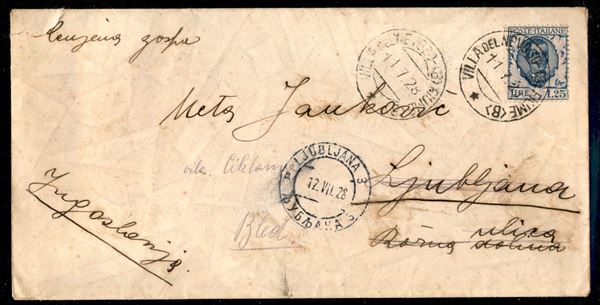 Cenjena gospa
Meta Janković
vila Ciklama
Ljubljana
Bled
Rožna ulica
dolina
Jugoslavija
VILLA DEL NEVOSO (FIUME) (B)
11.7.28
VILLA DEL NEVOSO (FIUME) (B)
11.7
POSTE ITALIANE
LIRE 1,25
LJUBLJANA 3
12.VII.28
ЉУБЉАНА 3